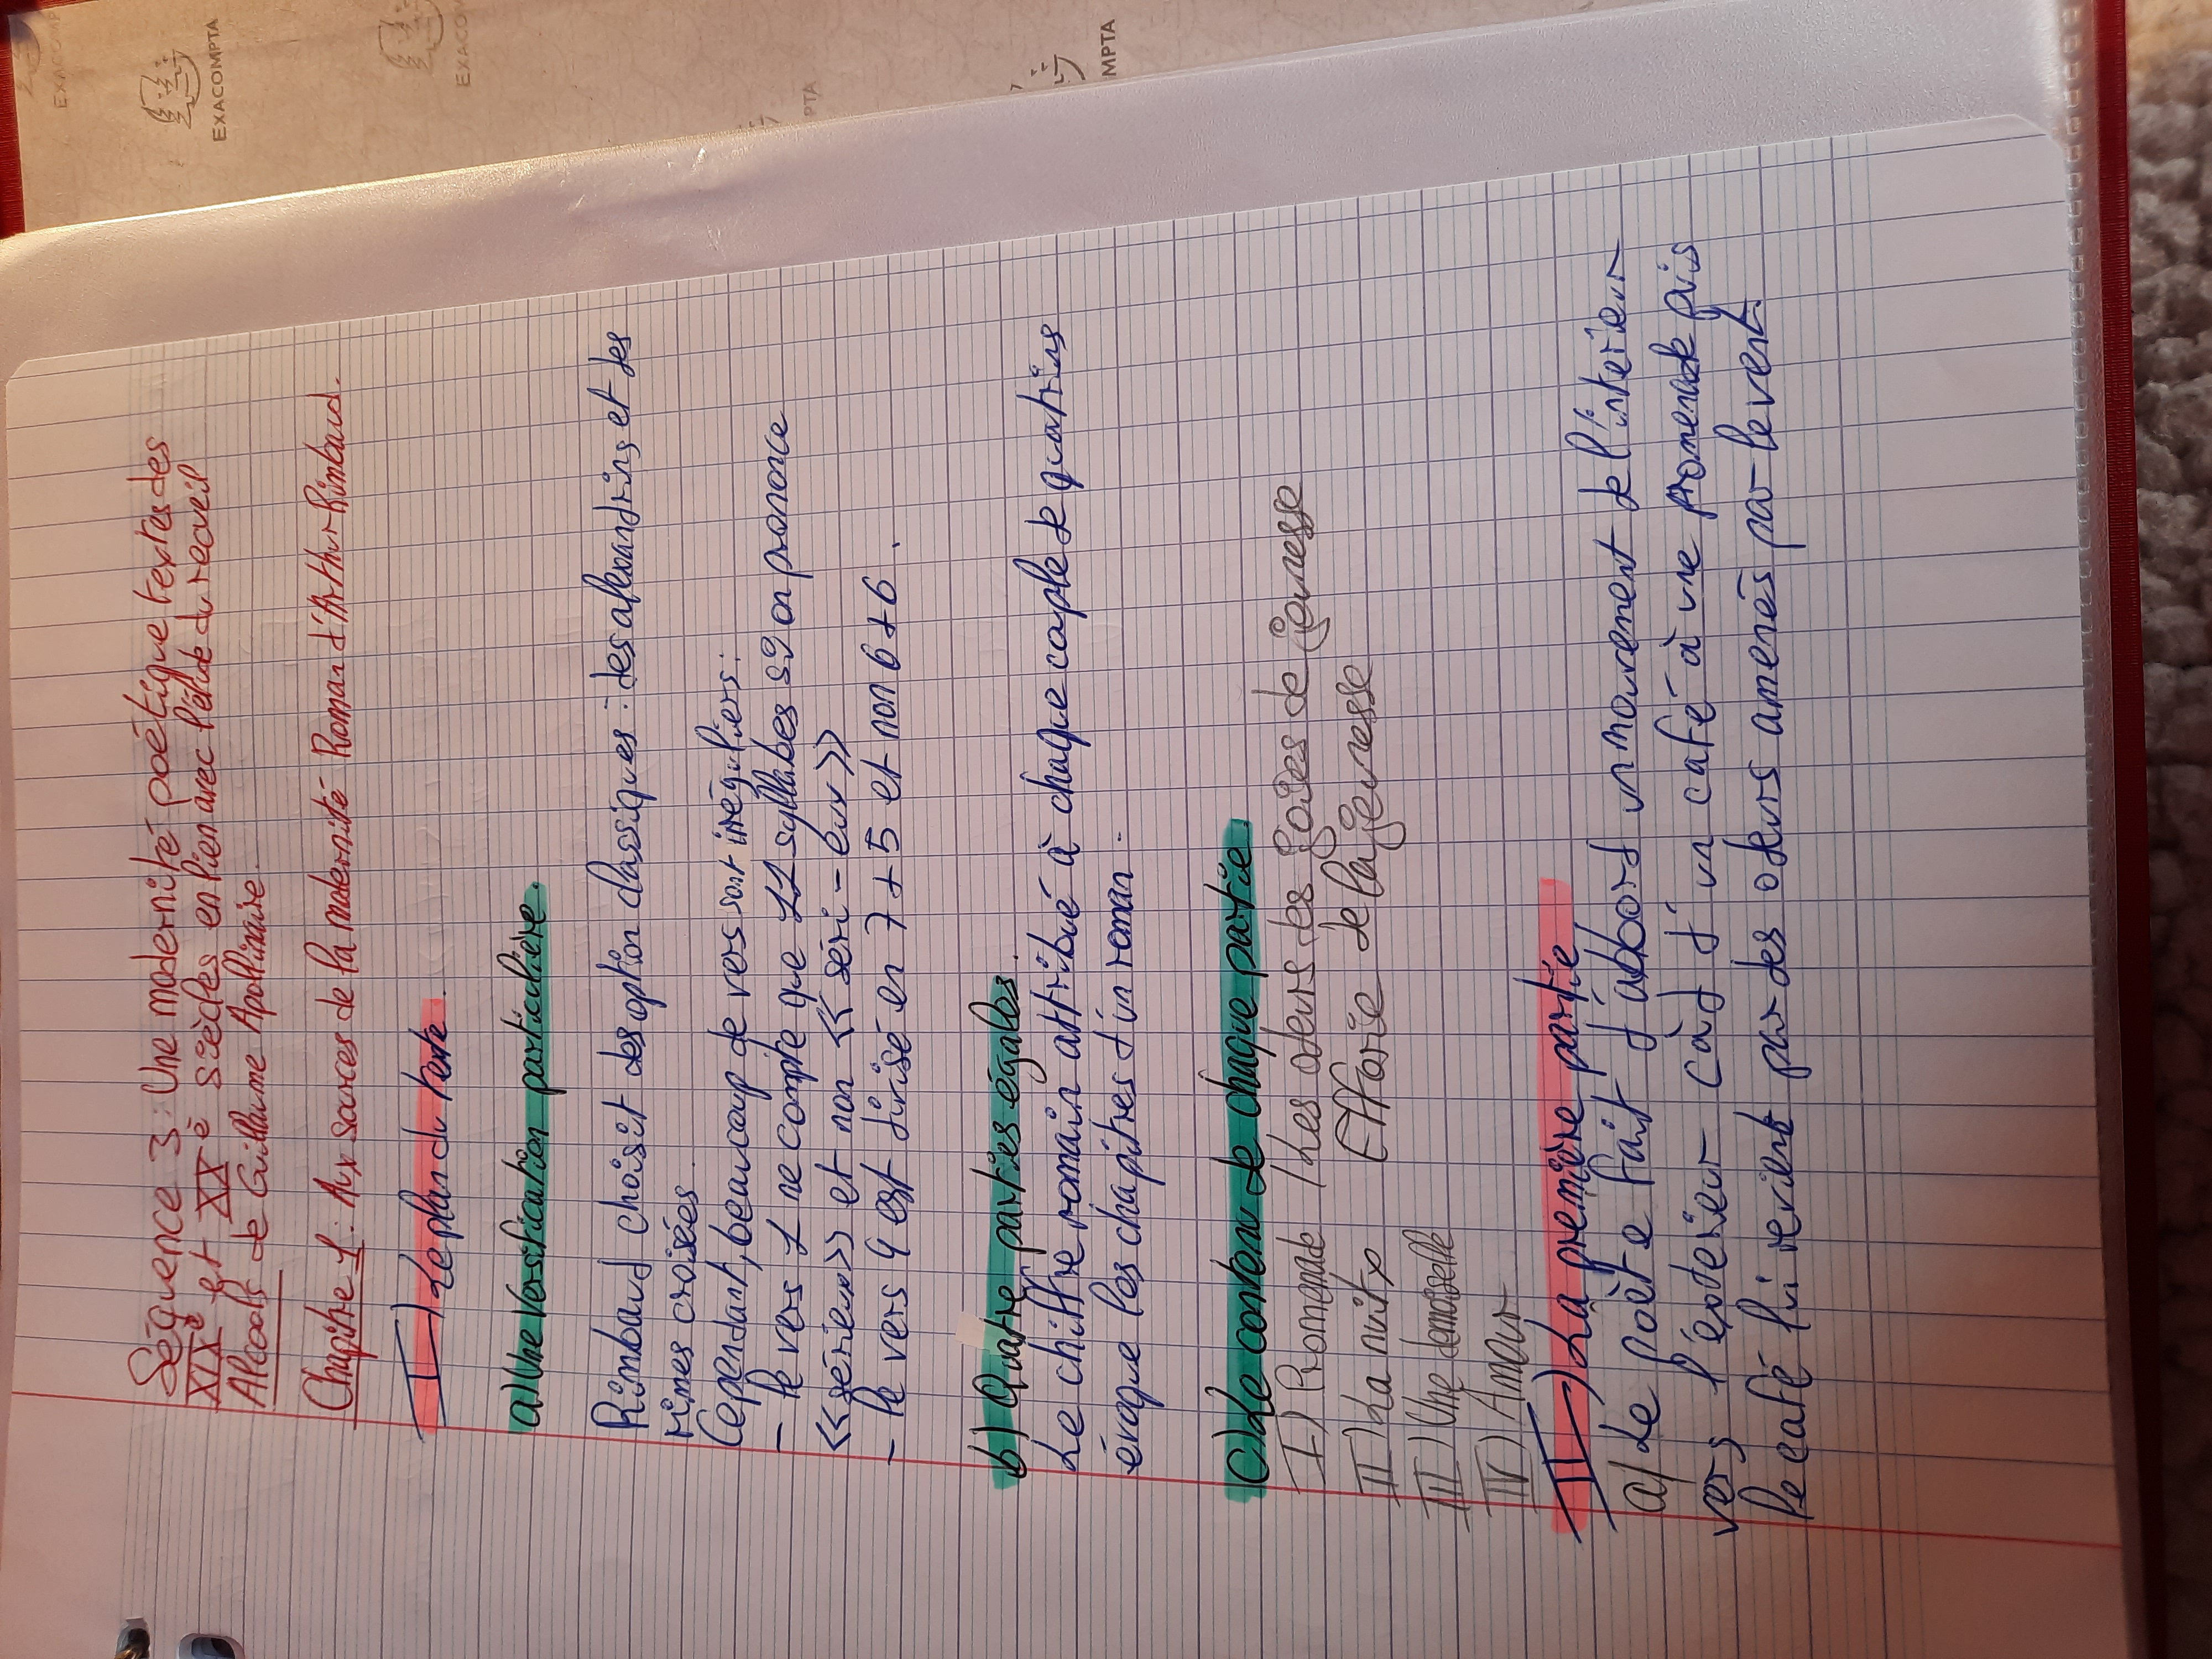 Séquence 3: Une modernité poétique textes des
XIXè et XXè siècles en lien avec l'étude du recueil
Alcools de Guillaume Apollinaire.
Chapitre 1: Aux sources de la modernité Roman d'Arthur Rimbaud.
I) Le plan du texte.
a) Une versification particulière.
Rimbaud choisit des option classiques: des alexandrins et des
rimes croisées.
Cependant, beaucoup de vers sont irréguliers:
- le vers 1 ne compte que 11 syllabes si on prononce
<<sérieux>> et non <<séri-eux>>
- le vers 9 est divisé en 7+5 et non 6+6.
b) Quatre parties égales.
Le chiffre romain attribué à chaque couple de quatrins
évoque les chapitres d'un roman.
c) Le contenu de chaque partie.
I) Promenade / Les odeurs des joies de jeunesse
II) La nuit de la jeunesse
III) Une demoiselle
IV) Amour
II) La première partie
a) Le poète fait d'abbord un mouvement de l'interieur
vers l'exterieur càd d'un café à une promenade puis
le café lui revient par des odeurs amenés par le vent.
EXACOMPTA
EXACOMPTA
EXACOM
PTA
MPTA